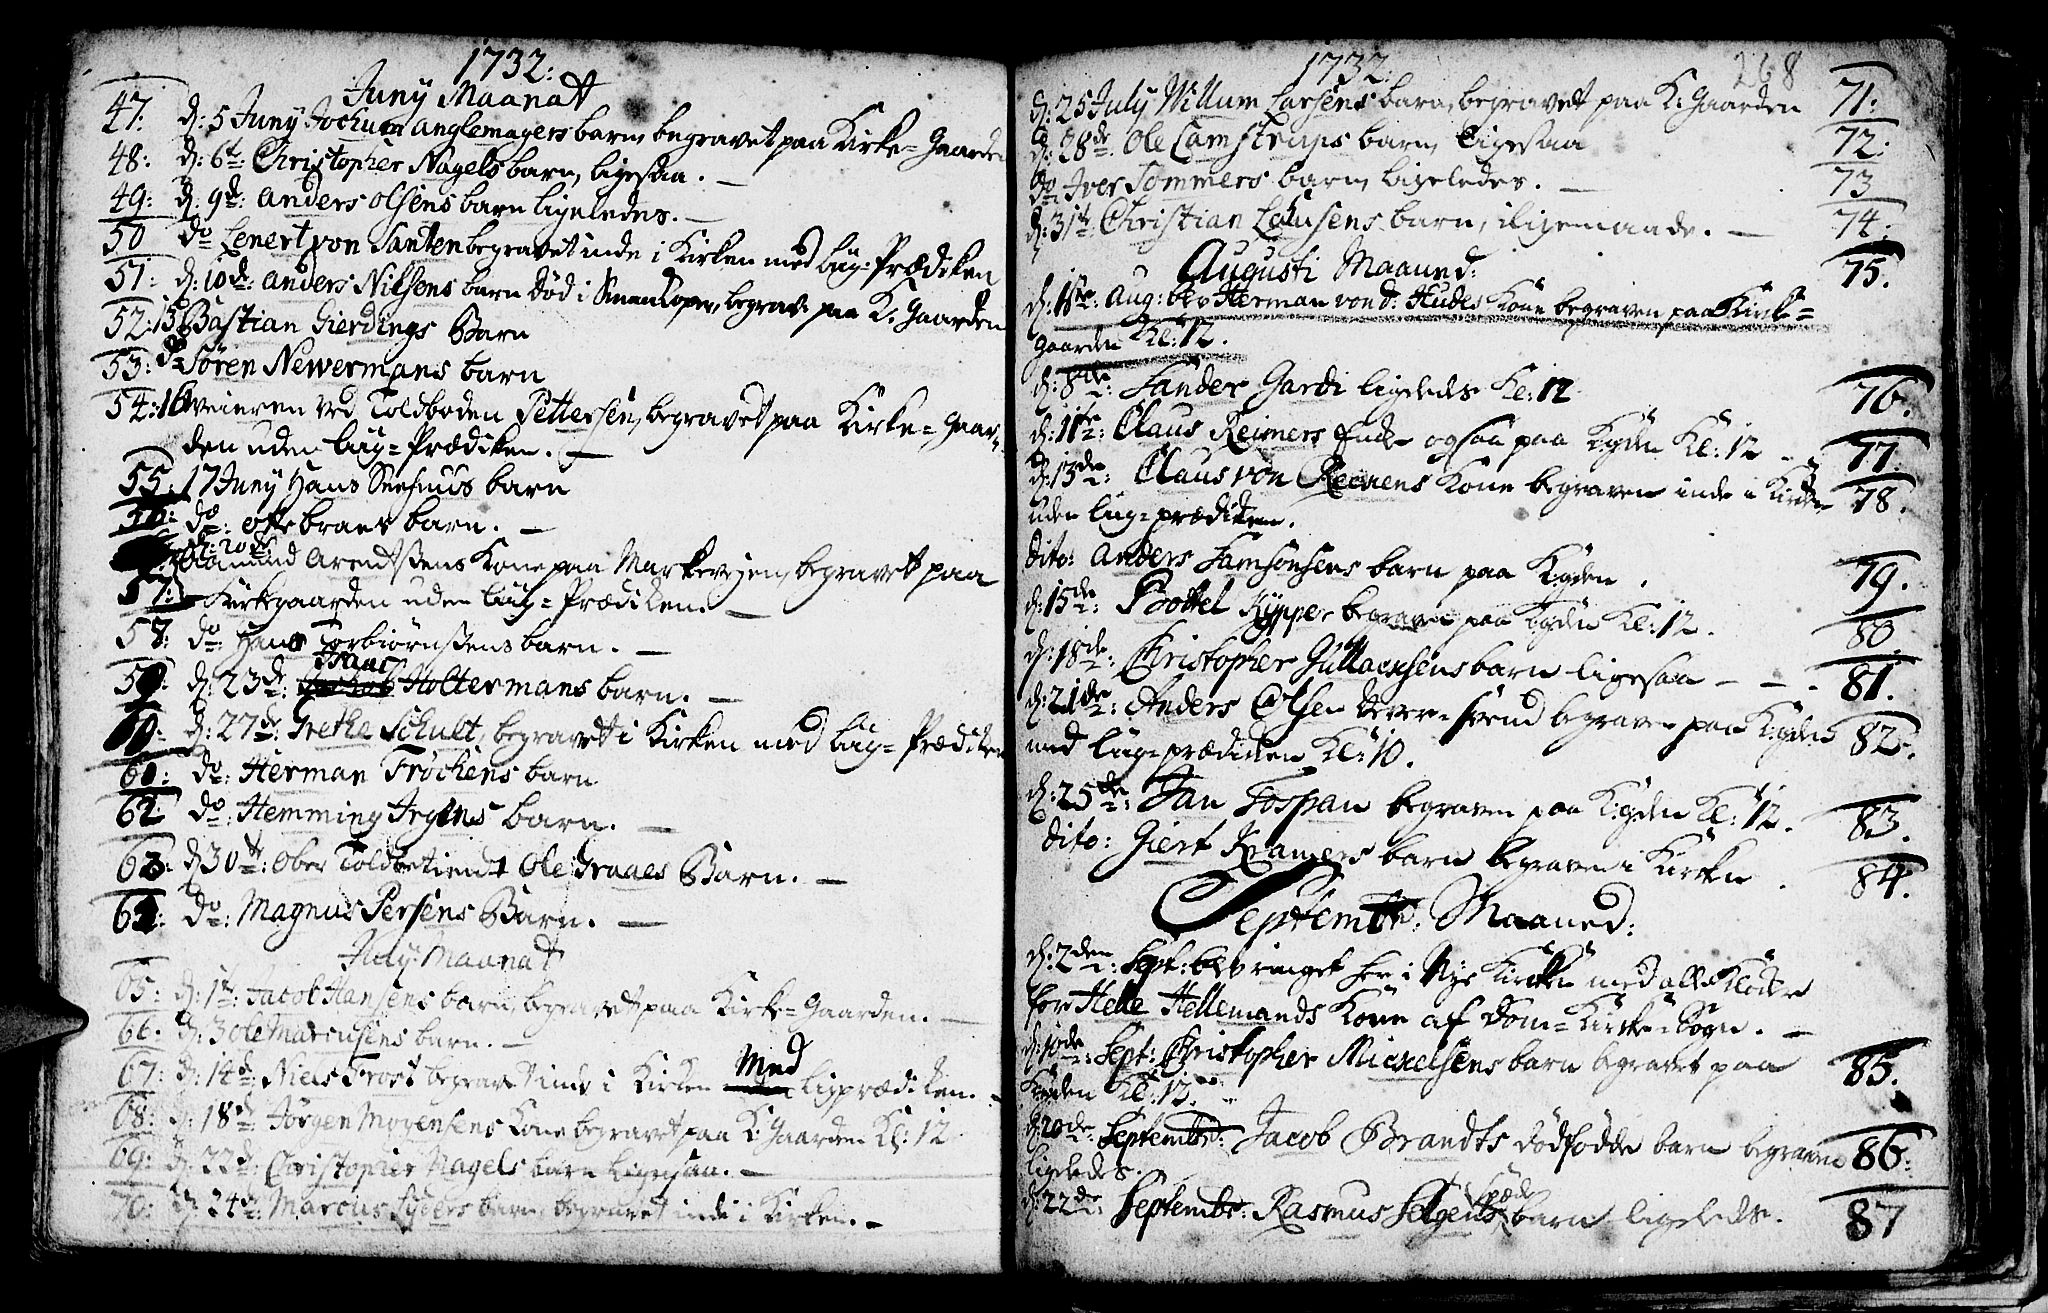 1732:
Juny Maanat
47: d: 5 Juny Jochum anglemagers barn, begravet paa Kirke=Gaarden
48: d: 6t: Christopher Nagels barn, ligesaa. —
49: d: 9de: anders olsens barn ligeledes. —
50 do Lenert von Santen begravet inde i Kirken med Liig=Prædiken
51: d: 10de: anders Nilsens barn død i begrav. paa K: Gaarden
52: 13 Bastian Gierdings Barn
53: do Søren Newermans barn
54: 16 veieren ved Toldboden Pettersen, begravet paa Kirke=Gaar=
den uden Liig=Prædiken. —
55: 17 Juny Hans Seehuus barn
56: do: otte braes barn. —
d: 20de: Aamund Arendtssens Kone paa Markeveyen, begravet paa
57: Kirkegaarden uden Liig=Prædiken. —
58: do: Hans Torbiørnssens barn. —
Isaac
59: d: 23de: Holtermans barn. —
60: d: 27de: Gretha Schult, begravet i Kirken med Liig=Prædiken
61: do: Herman Frøchens barn
62: do: Hemming Irgens barn. —
63: d: 30t: Ober Toldbetient Ole Graaes Barn. —
64: do: Magnus Persens Barn. —
July Maanat
65: d: 1t: Jacob Hansens barn, begravet paa Kirke=Gaarden. —
66: d: 3 ole Marcusens barn. —
Med
67: d: 14de: Niels Frost begravet inde i Kirken ligprædiken. —
68: d: 18de: Jørgen Moyensens Kone begravet paa K: Gaarden Kl: 12
69: d: 22de: Christopher Nagels barn ligesaa. —
70: d: 24de: Marcus Syders barn, begravet inde i Kirken. —
1732: 268
d: 25 July Willum Larsens barn, begravet paa K: Gaarden 71:
d: 28de: Ole Camstrups barn, ligesaa 72:
do Iver Sommers barn, ligeledes. — 73
d: 31t: Christian Clausens barn, iligemaade. — 74:
Augusti Maaned:
d: 1ste: Aug: blev Herman von d: Hudes Kone begraven paa Kirke= 75.
gaarden Kl: 12.
d: 8de: Sander Gardi ligeleds Kl: 12 76.
d: 11te: Claus Reimers Enke ogsaa paa K:gden Kl: 12 — 77.
d: 13de: Claus von Reekens Kone begraven inde i Kirken 78.
uden Liig=prædiken.
Dito: Anders Samsonsens barn paa K:gden. 79.
d: 15de: Bottel Kypper begraven paa K:gden Kl: 12. 80.
d: 18de: Christopher Gullacksens barn ligesaa — — 81.
d: 21de: Anders Olsen begraven paa K:gden 82.
med Liig=prædiken Kl: 10.
d: 25de: Jan Fosspan begraven paa K:gden Kl: 12. 83.
Dito: Giert Kramers barn begraven i Kirken. 84.
Septembr: Maaned:
d: 2den: Sept: blev ringet her i Nye Kircken med alle Klocker
for Helle Hellemands Kone af Dom=Kirke=Sogn. —
d: 10de: Sept: Christopher Mickelsens barn begravet paa 85.
K:gden Kl: 12.
d: 20de: Septembr: Jacob Brandts dødfødde barn begraven 86:
ligeledes.
spæde
d: 22de: Septembr: Rasmus Helgens barn ligeleds. 87